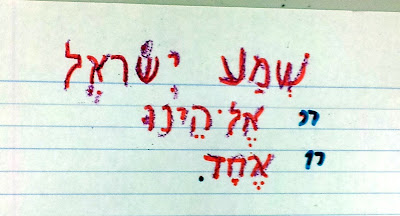 שְׁמַע יִשְׂרָאֵל
יי אֱלֹהֵינוּ
יי אֶחָד.